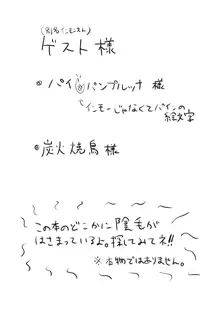 ゲスト様
●パイパンプルッナ 様
インモーじゃなくてパインの
絵文字
●炭火焼鳥様
この本のどこかに陰毛が
はさまっているよ。探してみてネ!!
※本物ではありません。